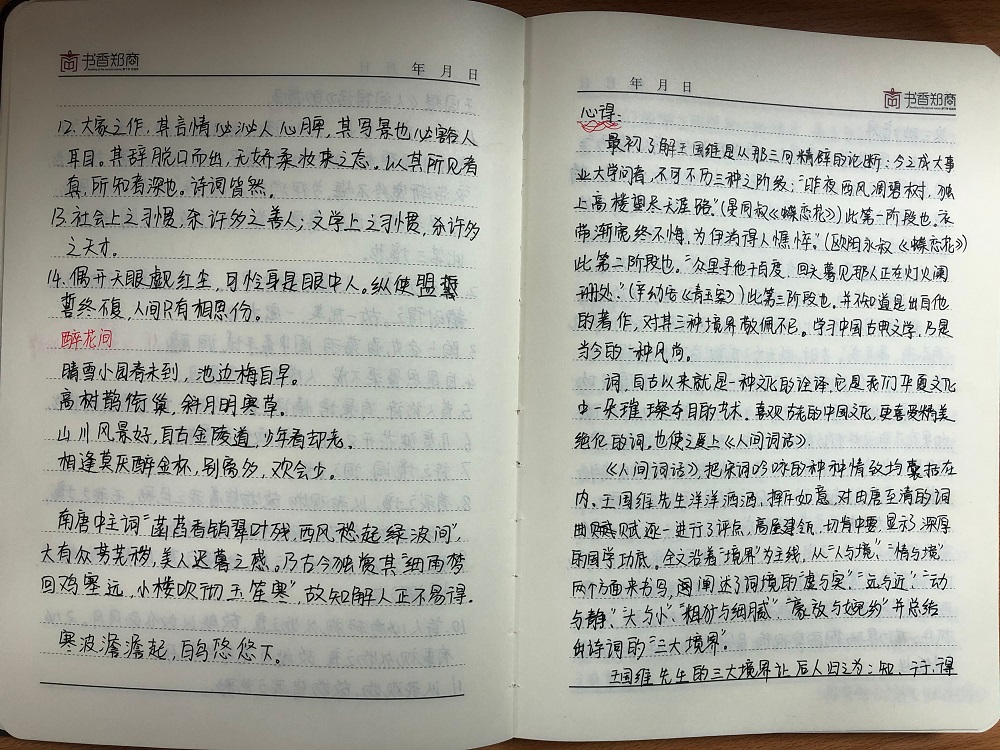 书香郑商
年 月 日
12. 大家之作,其言情必沁人心脾,其写景也必豁人
耳目。其辞脱口而出,无娇柔妆束之态。以其所见者
真,所知者深也。诗词皆然。
13. 社会上之习惯,杀许多之善人;文学上之习惯,杀许多
之天才。
14. 偶开天眼觑红尘,可怜身是眼中人。纵使盟
誓终不复,人间只有相思份。
醉花间
晴雪小园春未到,池边梅自早。
高树鹊衔巢,斜月明寒草。
山川风景好,自古金陵道,少年看却老。
相逢莫厌醉金杯,别离多,欢会少。
南唐中主词“菡萏香销翠叶残,西风愁起绿波间”,
大有众芳芜秽,美人迟暮之感。乃古今独赏其“细雨梦
回鸡塞远,小楼吹彻玉笙寒”,故知解人正不易得.
寒波澹澹起,白鸟悠悠下。
年 月 日
书香郑商
心得:
最初了解王国维是从那三句精辟的论断:今之成大事
业大学问者,不可不历三种之阶级;“昨夜西风凋碧树,独
上高楼望尽天涯路。”(晏同叔《蝶恋花》)此第一阶段也.“衣
带渐宽终不悔,为伊消得人憔悴。”(欧阳永叔《蝶恋花》)
此第二阶段也。“众里寻他千百度,回头蓦见那人正在灯火阑
珊处。”(辛幼安《青玉案》)此第三阶段也。并不知道是出自他
的著作,对其三种境界敬佩不已。学习中国古典文学,乃是
当今的一种风尚。
词,自古以来就是一种文化的诠译,它是我们华夏文化
中一朵璀璨夺目的艺术。喜欢古老的中国文化,更喜爱精美
绝伦的词。也便爱上《人间词话》.
《人间词话》把宋词吟咏的种种情致均囊括在
内,王国维先生洋洋洒洒,挥斥如意,对由唐至清的词
曲赋逐一进行了评点,高屋建瓴,切肯中要,显示了深厚
的国学功底。全文沿着“境界”为主线,从“人与境”、“情与境”
两个方面来书写,阐述了词境的“虚与实”、“远与近”、“动
与静”、“大与小”、“粗犷与细腻”、“豪放与婉约”并总结
出诗词的“三大境界”。
王国维先生的三大境界让后人归之为:知、行、得